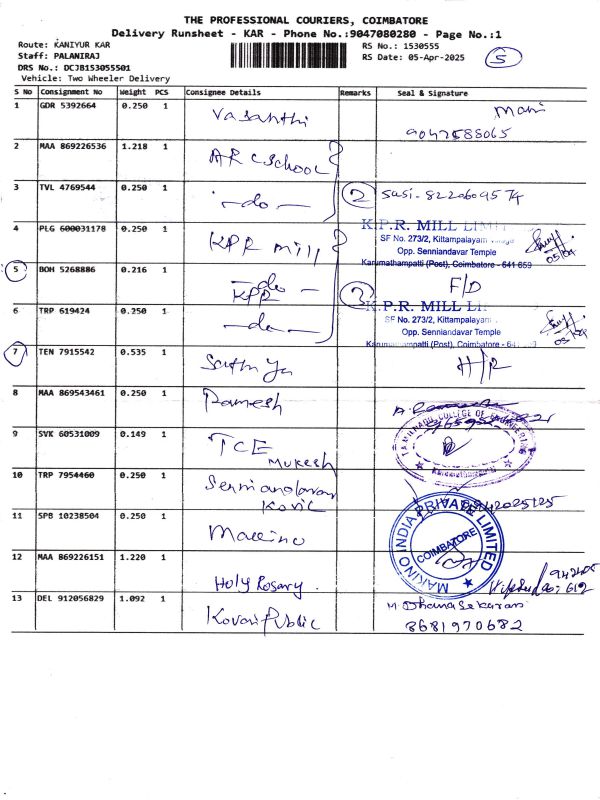 THE PROFESSIONAL COURIERS, COIMBATORE
Delivery Runsheet - KAR - Phone No.:9047080280 - Page No.:1
Route: KANIYUR KAR
RS No.: 1530555
Staff: PALANIRAJ
RS Date: 05-Apr-2025
5
DRS No.: DCJB153055501
Vehicle: Two Wheeler Delivery
S No Consignment No Weight PCS Consignee Details Remarks Seal & Signature
1 GDR 5392664 0.250 1 Vasanthi Mani
9042588065
2 MAA 869226536 1.218 1 ARC School
3 TVL 4769544 0.250 1 —do— 2 Susi-8220609574
4 PLG 600031178 0.250 1 KPR Mill
K.P.R. MILL LIMIT
SF No. 273/2, Kittampalayam
Opp. Senniandavar Temple
Karumathampatti (Post), Coimbatore - 641 659
05/04
5 BOH 5268886 0.216 1 —do— F/D
KPR
3
6 TRP 619424 0.250 1 —do—
K.P.R. MILL LI
SF No. 273/2, Kittampalayam
Opp. Senniandavar Temple
Karumathampatti (Post), Coimbatore - 641 659
7 TEN 7915542 0.535 1 Sathya H/R
8 MAA 869543461 0.250 1 Ramesh
9 SVK 60531009 0.149 1 TCE
Mukesh
TAMILNADU COLLEGE OF ENGINEERING
Karumathampatti
10 TRP 7954460 0.250 1 Senniandavan
Kovil
11 SPB 10238504 0.250 1 Makino
MAKINO INDIA PRIVATE LIMITED
COIMBATORE
12 MAA 869226151 1.220 1 Holy Rosary.
13 DEL 912056829 1.092 1 Kovai Public
M. Dhanasekaran
8681970682